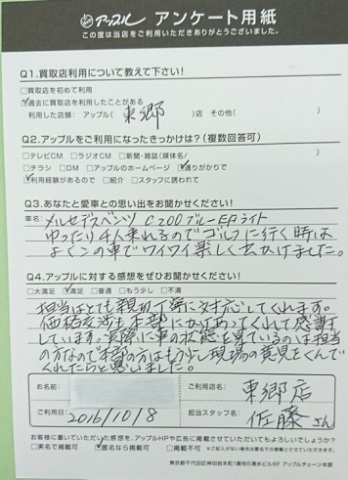 アップル アンケート用紙
この度は当店をご利用いただきありがとうございました。
Q1.買取店利用について教えて下さい!
□買取店を初めて利用
☑過去に買取店を利用したことがある
利用した店舗:アップル( 東郷 )店 その他( )
Q2.アップルをご利用になったきっかけは?(複数回答可)
□テレビCM □ラジオCM □新聞・雑誌(媒体名/ )
□チラシ □DM □アップルのホームページ ☑通りがかりで
☑利用経験があるので □紹介 □スタッフに誘われて
Q3.あなたと愛車との思い出をお聞かせください!
車名: メルセデスベンツ C200ブルーEFライト
ゆったり4人乗れるのでゴルフに行く時は
よくこの車でワイワイ楽しく出かけました。
Q4.アップルに対する感想をぜひお聞かせください!
□大満足 ☑満足 □普通 □もう少し □不満
担当はとても親切丁寧に対応してくれます。
価格交渉も本部にかけあってくれて感謝
しています。実際に車の状態を見ているのは担当
の方なので本部の方はもう少し現場の意見をくんで
くれたらと思いました。
お名前:
ご利用店名: 東郷店
ご利用日: 2016/10/8
担当スタッフ名: 佐藤さん
お客様に書いていただいた感想を、アップルHPや広告に掲載させていただいてもよろしいでしょうか?
□実名で掲載可 ☑匿名なら掲載可 □掲載不可